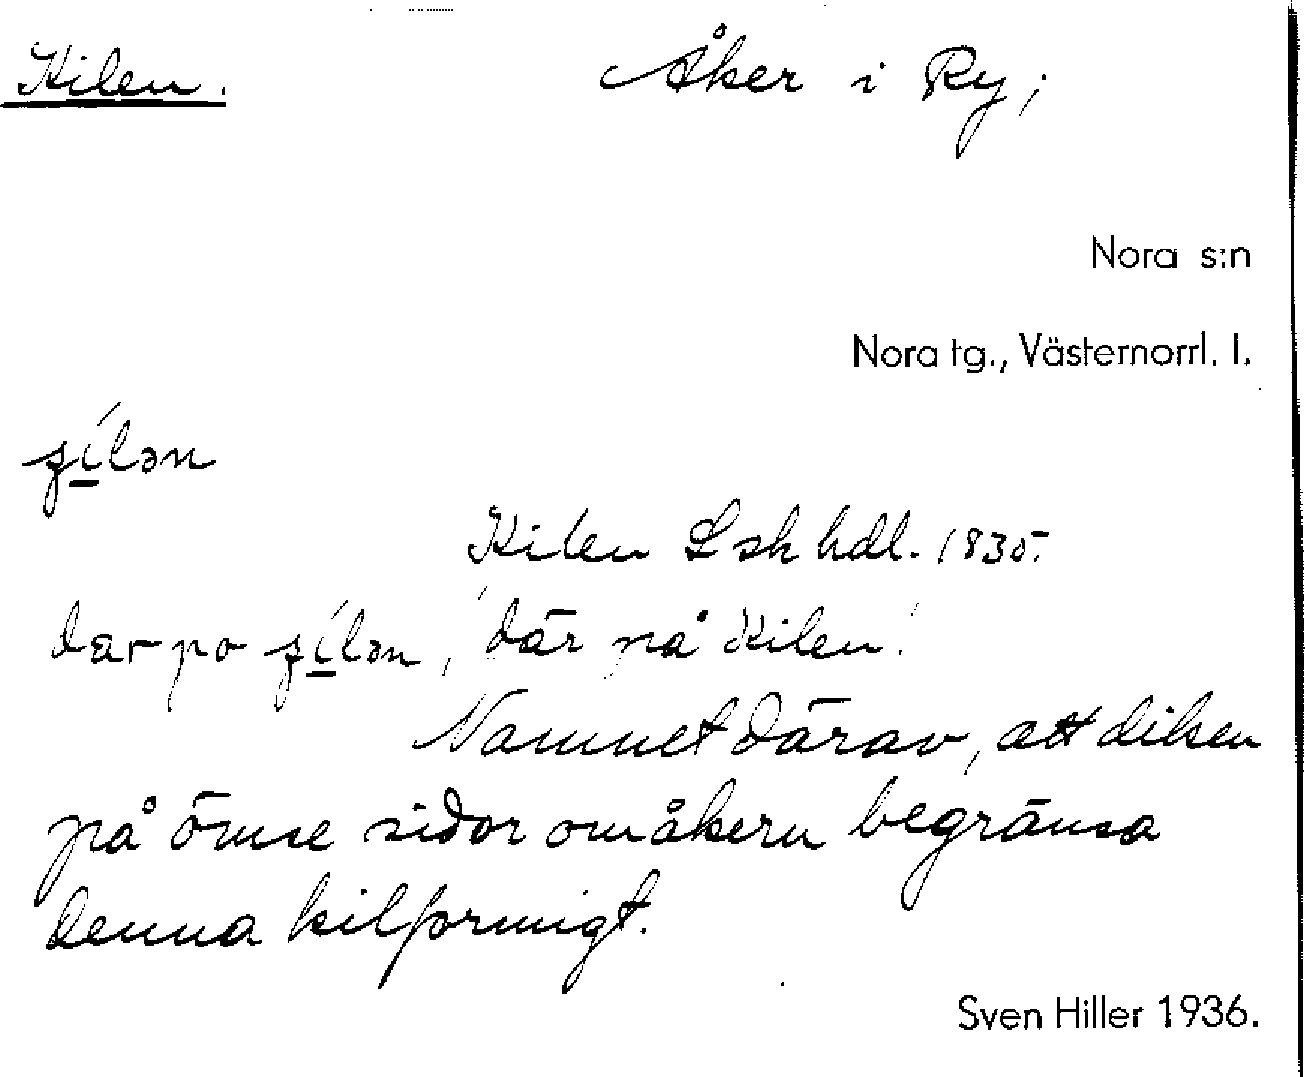 Kilen. Åker i Ry;
Nora s:n
Nora tg., Västernorrl. l.
Kilen Lskhdl. 1830.
där på Kilen.
Namnet därav, att diken
på ömse sidor om åkern begränsa
denna kilformigt.
Sven Hiller 1936.